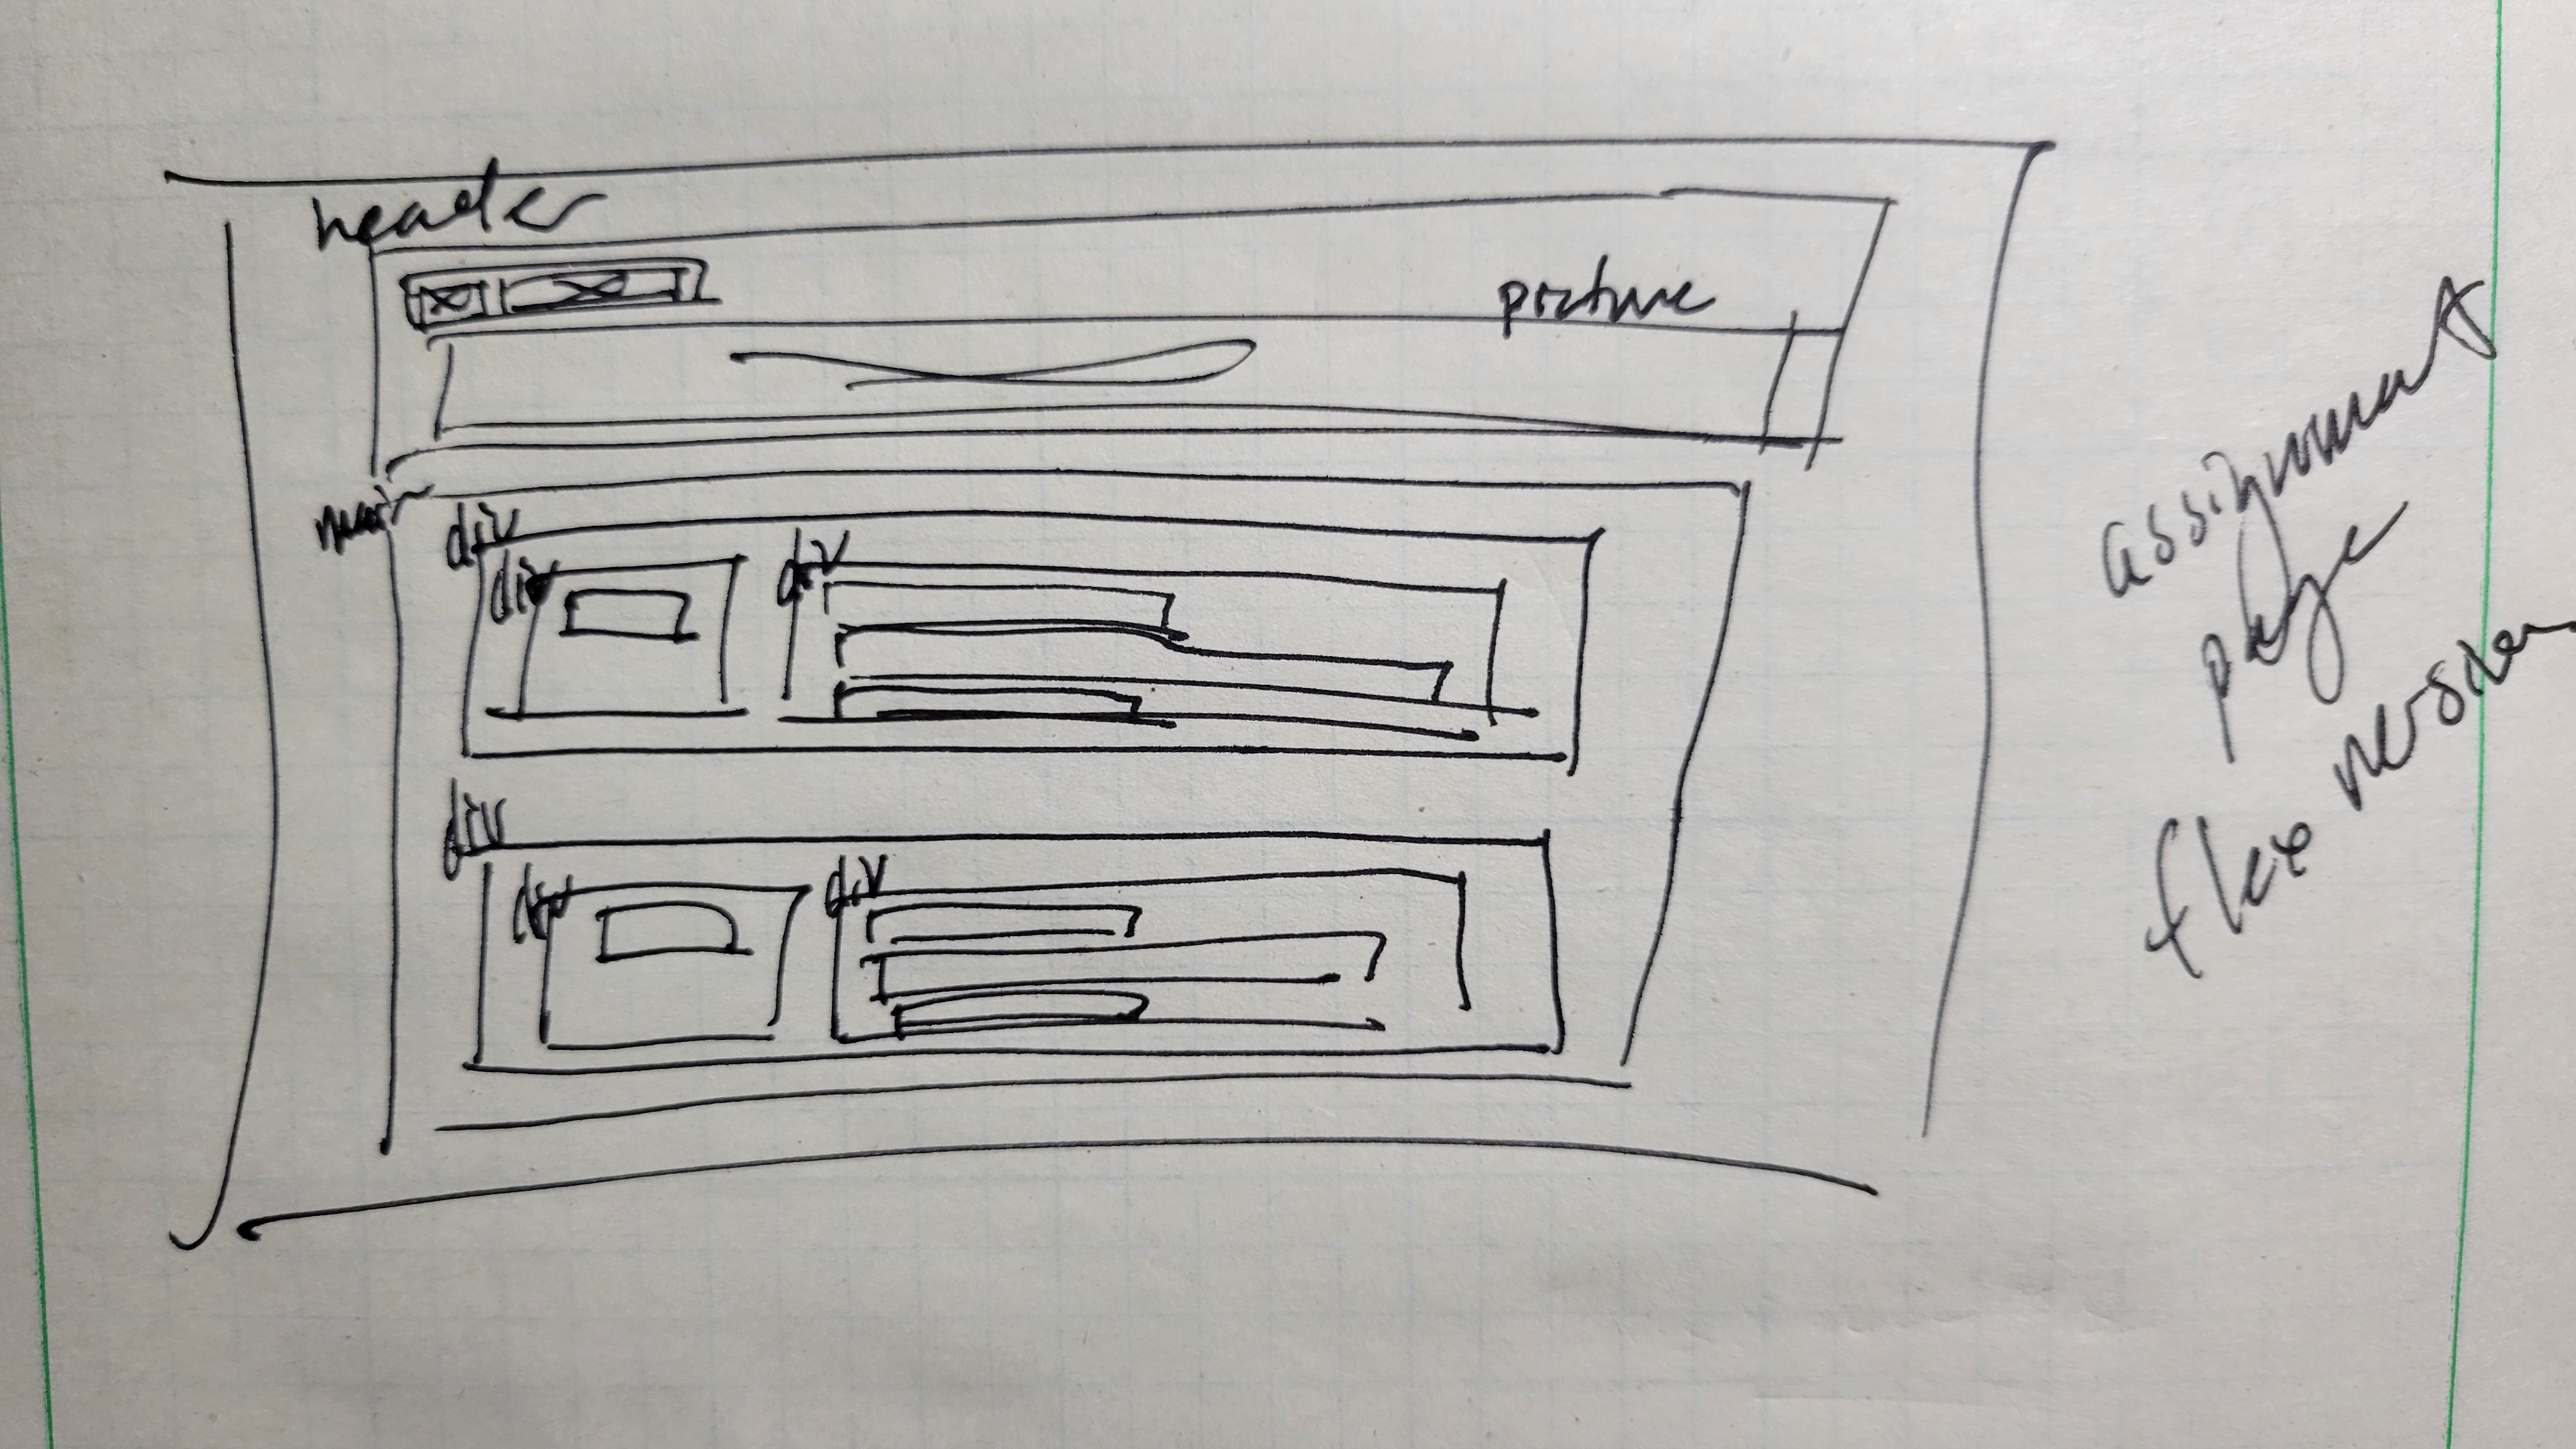 header
picture
main
div
div
div
div
div
div
assignment
page
flex version